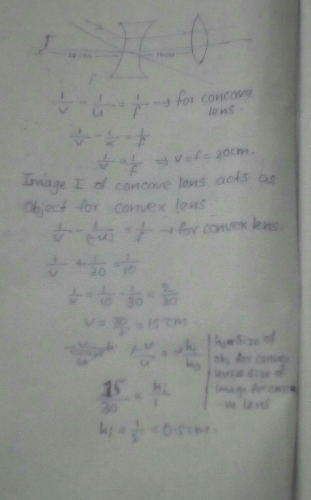 1/v - 1/u = 1/f → for concave
lens.
1/v - 1/∝ = 1/f
1/v = 1/f ⇒ v=f= 20cm.
Image I of concave lens acts as
Object for convex lens
1/v - 1/(-u) = 1/f → for convex lens.
1/v + 1/30 = 1/10
1/v = 1/10 - 1/30 = 2/30
v = 30/2 = 15cm
v/u = hi/ho
ho=size of
obj for convex
lens=size of
image for conca
-ve lens
15/30 = hi/1
hi = 1/2 = 0.5cm.